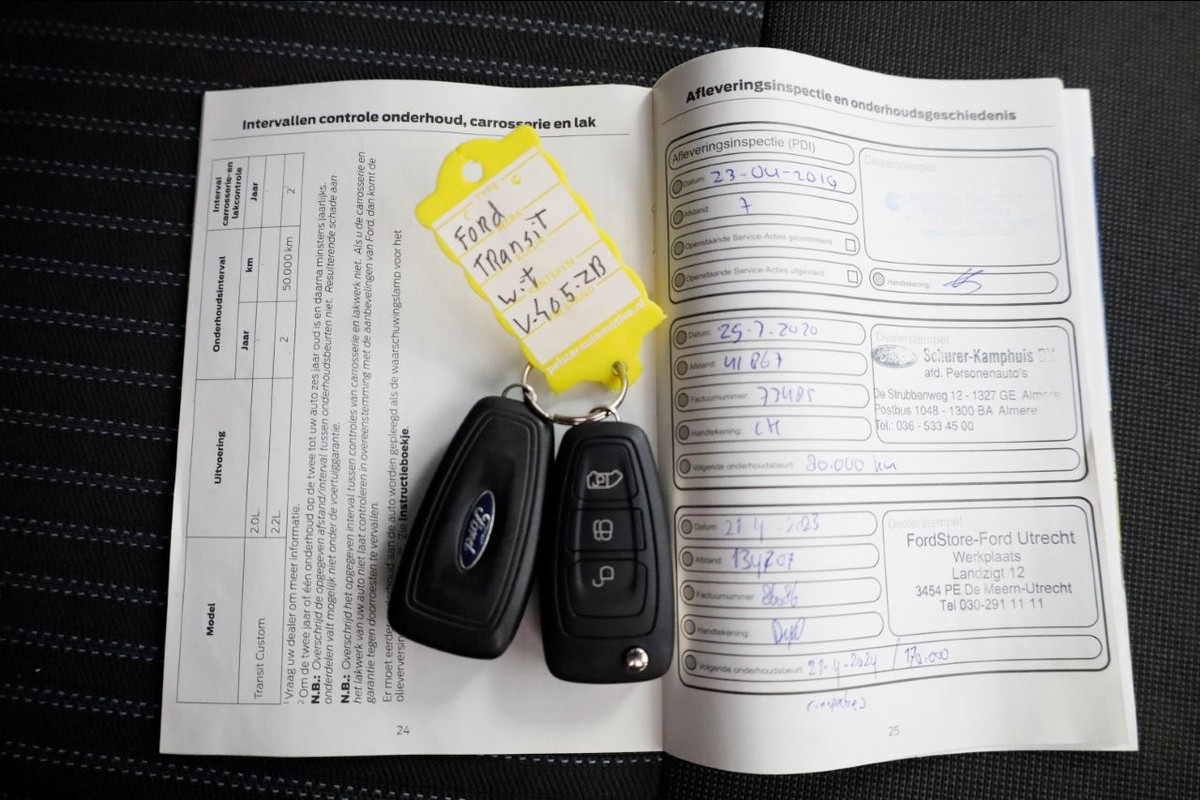 Intervallen controle onderhoud, carrosserie en lak
Model
Uitvoering
Onderhoudsinterval
Interval carrosserie-en lakcontrole
Jaar
km
Jaar
Transit Custom
2.0L
2.2L
2
50.000 km
2
¹ Vraag uw dealer om meer informatie.
² Om de twee jaar of één onderhoud op de twee tot uw auto zes jaar oud is en daarna minstens jaarlijks.
N.B.: Overschrijd de opgegeven afstand/interval tussen onderhoudsbeurten niet. Resulterende schade aan
onderdelen valt mogelijk niet onder de voertuiggarantie.
N.B.: Overschrijd het opgegeven interval tussen controles van carrosserie en lakwerk niet. Als u de carrosserie en
het lakwerk van uw auto niet laat controleren in overeenstemming met de aanbevelingen van Ford, dan komt de
garantie tegen doorroesten te vervallen.
Er moet eerder onderhoud aan de auto worden gepleegd als de waarschuwingslamp voor het
olieverversin
Zie Instructieboekje.
24
TYPE
Ford
Transit
wit
V-405-ZB
pelsterautomotive.nl
Ford
Afleveringsinspectie en onderhoudsgeschiedenis
Afleveringsinspectie (PDI)
Datum: 23-04-2019
Afstand: 7
Openstaande Service-Acties gecontroleerd
Openstaande Service-Acties uitgevoerd
Dealerstempel
Handtekening:
Datum: 29-7-2020
Afstand: 41867
Factuurnummer: 73485
Handtekening:
Volgende onderhoudsbeurt: 80.000 km
Dealerstempel
Schurer-Kamphuis BV
afd. Personenauto's
De Strubbenweg 12 - 1327 GE Almere
Postbus 1048 - 1300 BA Almere
Tel.: 036 - 533 45 00
Datum: 21 4 2023
Afstand: 134707
Factuurnummer:
Handtekening:
Volgende onderhoudsbeurt: 21-4-2024 / 170.000
Dealerstempel
FordStore-Ford Utrecht
Werkplaats
Landzigt 12
3454 PE De Meern-Utrecht
Tel 030-291 11 11
25